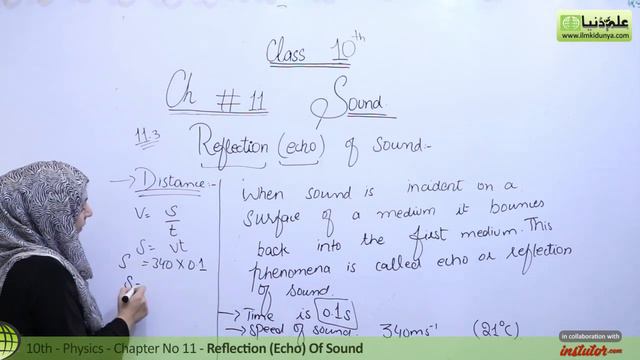 علم کی دنیا
www.ilmkidunya.com
Class 10th
Ch # 11 Sound
11.3 Reflection (echo) of sound:-
→ Distance:-
V = S/t
S = vt
S = 340 x 0.1
S =
When sound is incident on a
surface of a medium it bounces
back into the first medium. This
phenomena is called echo or reflection
of sound.
→ Time is 0.1s
→ Speed of sound 340ms⁻¹ (21°C)
in collaboration with
instutor.com
10th - Physics - Chapter No 11 - Reflection (Echo) Of Sound